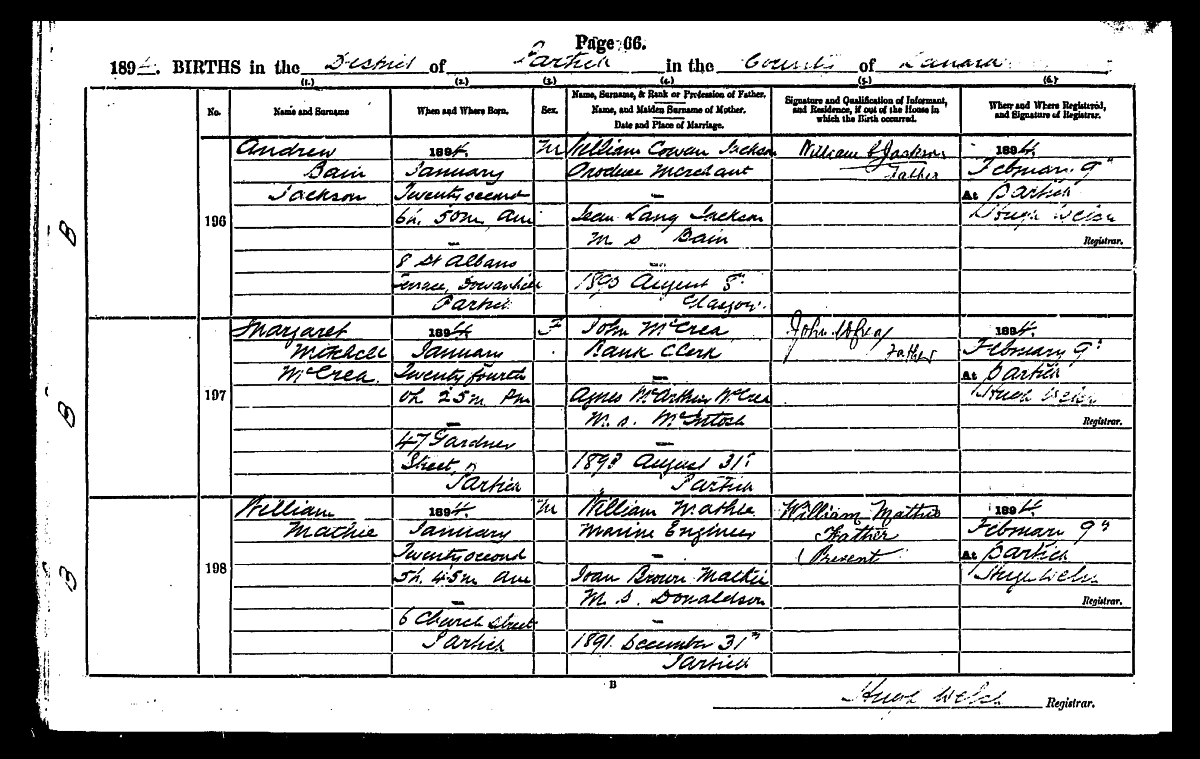 Page 66.
1894. BIRTHS in the District of Partick in the County of Lanark
(1.) (2.) (3.) (4.) (5.) (6.)
No.
Name and Surname
When and Where Born.
Sex.
Name, Surname, & Rank or Profession of Father.
Name, and Maiden Surname of Mother.
Date and Place of Marriage.
Signature and Qualification of Informant,
and Residence, if out of the House in
which the Birth occurred.
When and Where Registered,
and Signature of Registrar.
196
Andrew
Bain
Jackson
1894.
January
Twenty second
6h. 50m. Am
8 St Albans
Terrace, Dowanhill
Partick
M
William Cowan Jackson
Produce Merchant
Jean Lang Jackson
M. S. Bain
1890 August 8th
Glasgow.
William C Jackson
Father
1894.
February 9"
At Partick
Hugh Welsh
Registrar.
B
197
Margaret
Mitchell
McCrea.
1894.
January
Twenty fourth
0h. 25m. Pm
47 Gardner
Street,
Partick
F
John McCrea
Bank Clerk
Agnes McArthur McCrea
M. S. McIntosh
1893 August 31st
Partick
John McCrea
Father
1894.
February 9"
At Partick
Hugh Welsh
Registrar.
B
198
William
Mathie
1894.
January
Twenty second
5h. 45m. Am
6 Church Street
Partick
M
William Mathie
Marine Engineer
Joan Brown Mathie
M. S. Donaldson
1891 December 31st
Partick
William Mathie
Father
(Present
1894.
February 9"
At Partick
Hugh Welsh
Registrar.
B
B
Hugh Welsh Registrar.